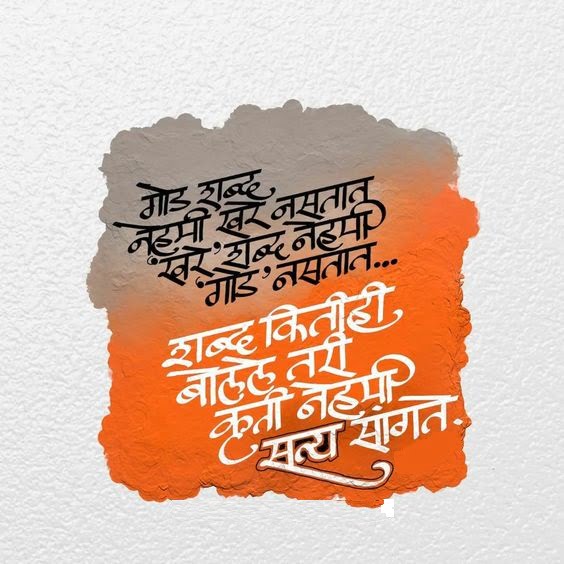 गोड शब्द
नेहमी 'खरे' नसतात
'खरे' शब्द नेहमी
'गोड' नसतात...
शब्द कितीही
बोलले तरी
कृती नेहमी
सत्य सांगते.